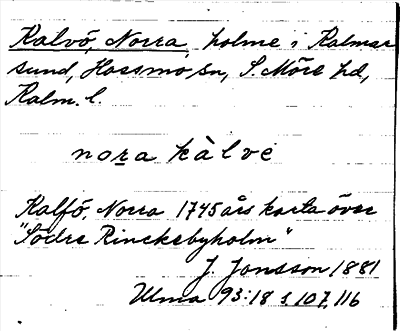 Kalvö, Norra, holme i Kalmar
sund, Hossmo sn, S. Möre hd,
Kalm. l.
nora kàlvė
Kalfö, Norra 1745 års karta över
"Södre Rinckebyholm"
J. Jonsson 1881
Ulma 93:18 s. 107, 116